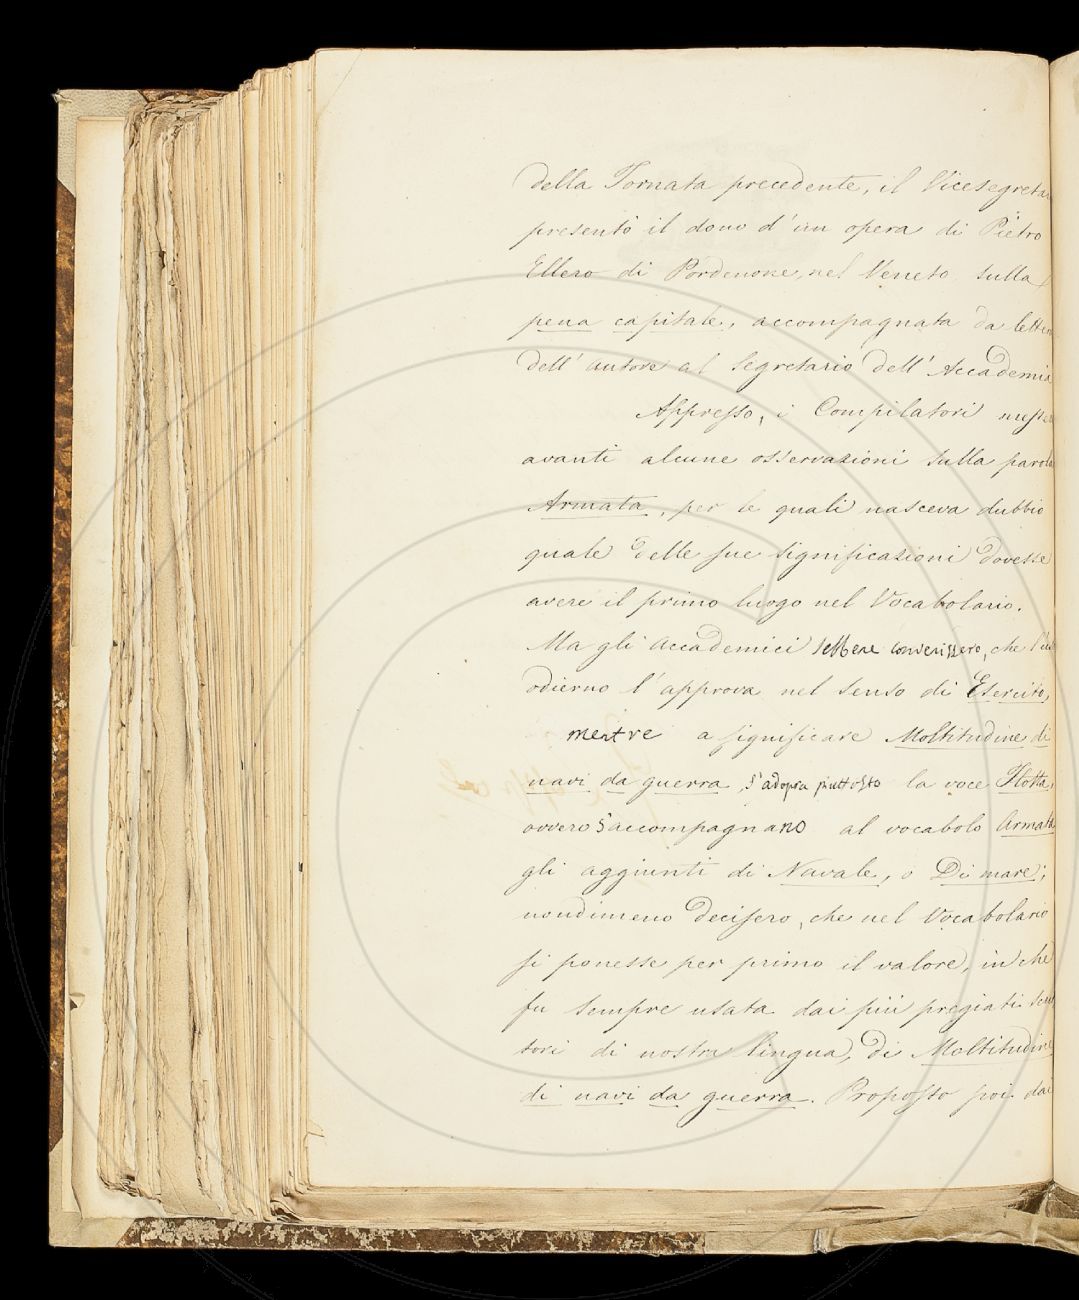 della Tornata precedente, il Vicesegreta
presentò il dono d'un opera di Pietro
Ellero di Pordenone, nel Veneto, sulla
pena capitale, accompagnata da letter
dell'autore al Segretario dell'Accademia
Appresso, i Compilatori messer
avanti alcune osservazioni sulla parola
Armata, per le quali nasceva dubbio
quale delle sue significazioni dovesse
avere il primo luogo nel Vocabolario.
Ma gli Accademici sebbene convenissero, che l'us
odierno l'approva nel senso di Esercito,
mentre a significare Moltitudine di
navi da guerra, s'adopra piuttosto la voce Flotta,
ovvero s'accompagnano al vocabolo Armata
gli aggiunti di Navale, o Di mare;
nondimeno decisero, che nel Vocabolario
si ponesse per primo il valore, in che
fu sempre usata dai più pregiati scrit
tori di nostra lingua, di Moltitudine
di navi da guerra. Proposto poi dai